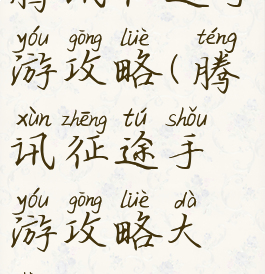 yóu gōng lüè téng
游攻略(腾
xùn zhēng tú shǒu
讯征途手
yóu gōng lüè dà
游攻略大